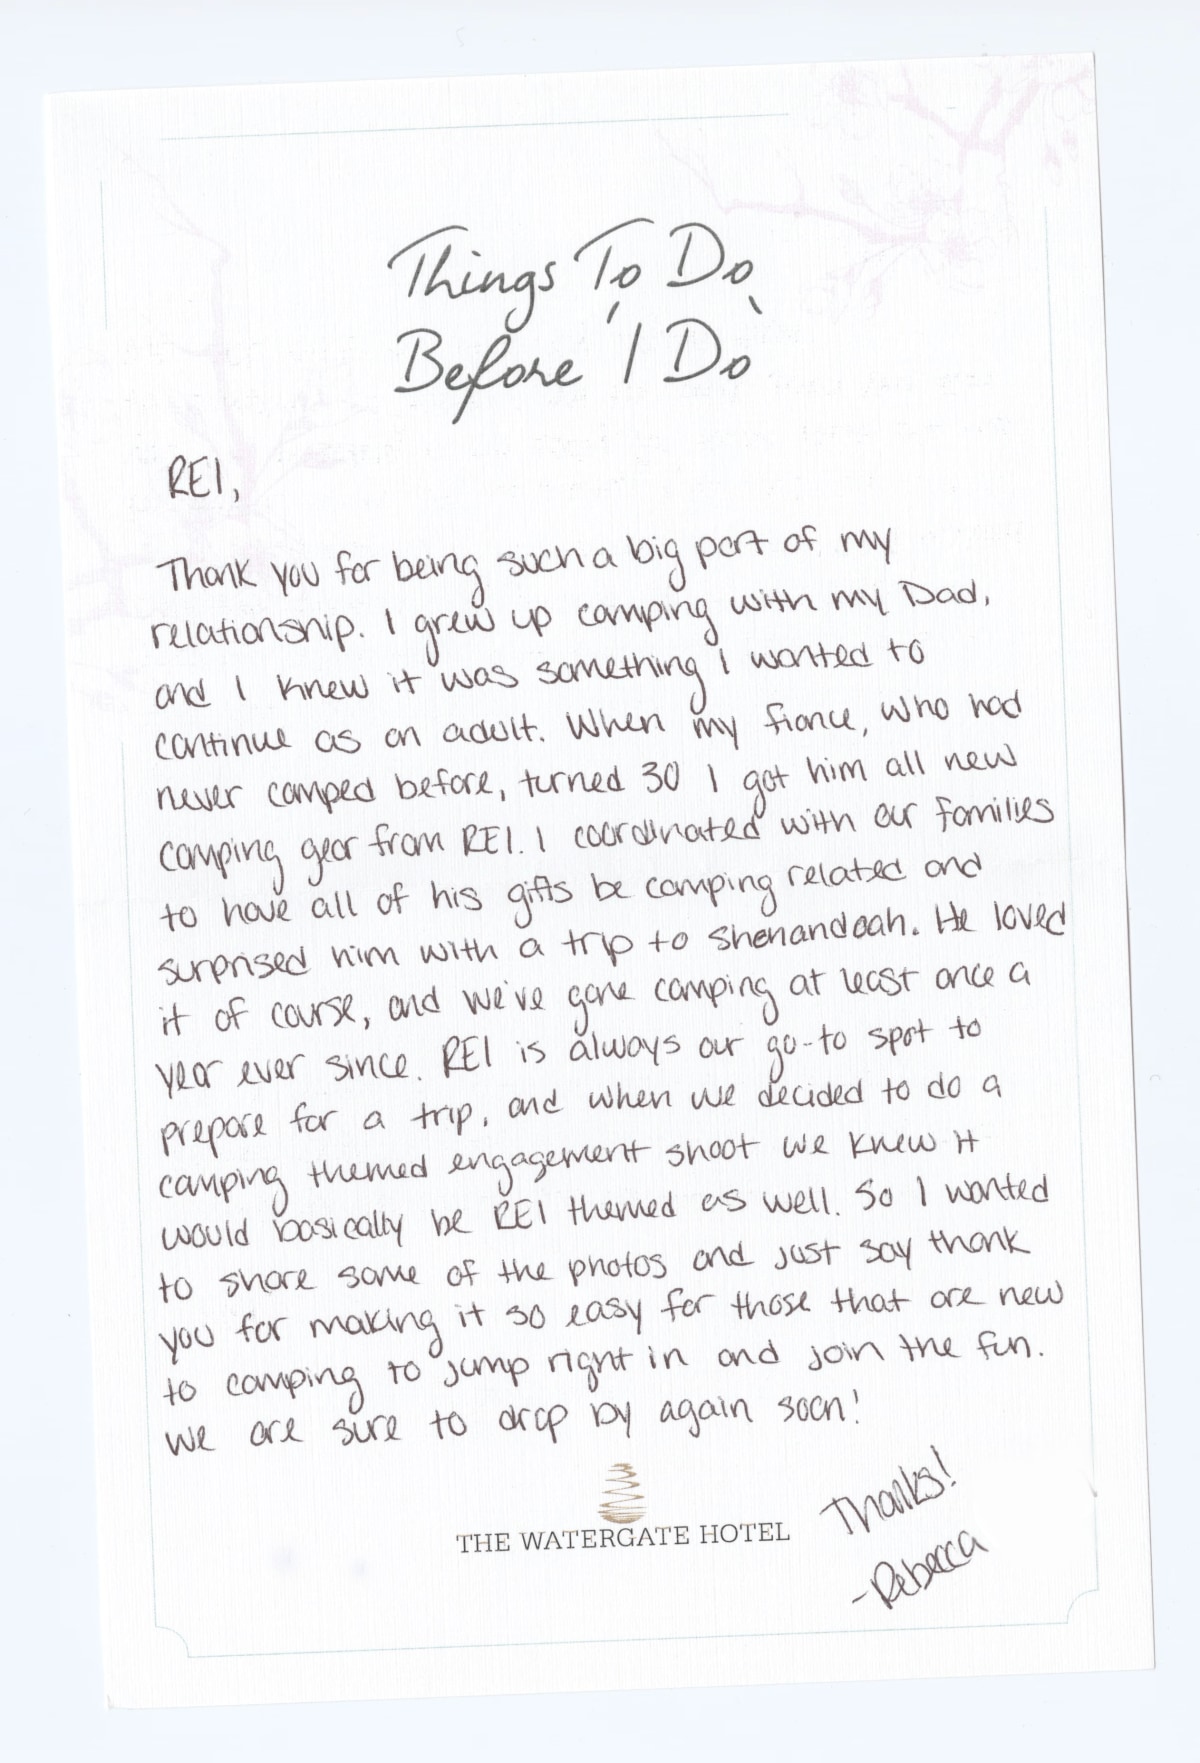 Things To Do
Before 'I Do'
REI,
Thank you for being such a big part of my
relationship. I grew up camping with my Dad,
and I knew it was something I wanted to
continue as an adult. When my fiance, who had
never camped before, turned 30 I got him all new
camping gear from REI. I coordinated with our families
to have all of his gifts be camping related and
surprised him with a trip to Shenandoah. He loved
it of course, and we've gone camping at least once a
year ever since. REI is always our go-to spot to
prepare for a trip, and when we decided to do a
camping themed engagement shoot we knew it
would basically be REI themed as well. So I wanted
to share some of the photos and just say thank
you for making it so easy for those that are new
to camping to jump right in and join the fun.
We are sure to drop by again soon!
Thanks!
-Rebecca
THE WATERGATE HOTEL